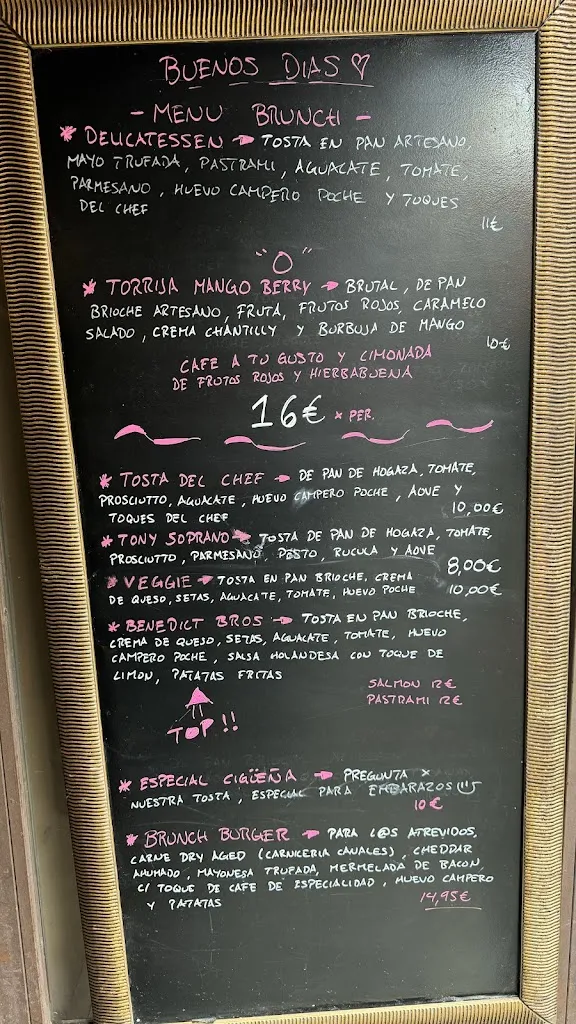 BUENOS DIAS ♡
- MENU BRUNCH -
* DELICATESSEN → TOSTA EN PAN ARTESANO,
MAYO TRUFADA, PASTRAMI, AGUACATE, TOMATE,
PARMESANO, HUEVO CAMPERO POCHE Y TOQUES
DEL CHEF
11€
"O"
* TORRIJA MANGO BERRY → BRUTAL, DE PAN
BRIOCHE ARTESANO, FRUTA, FRUTOS ROJOS, CARAMELO
SALADO, CREMA CHANTILLY Y BURBUJA DE MANGO
10€
CAFE A TU GUSTO Y LIMONADA
DE FRUTOS ROJOS Y HIERBABUENA
16€ x PER.
* TOSTA DEL CHEF → DE PAN DE HOGAZA, TOMATE,
PROSCIUTTO, AGUACATE, HUEVO CAMPERO POCHE, AOVE Y
TOQUES DEL CHEF 10,00€
* TONY SOPRANO → TOSTA DE PAN DE HOGAZA, TOMATE,
PROSCIUTTO, PARMESANO, PESTO, RUCULA Y AOVE
8,00€
* VEGGIE → TOSTA EN PAN BRIOCHE, CREMA
DE QUESO, SETAS, AGUACATE, TOMATE, HUEVO POCHE 10,00€
* BENEDICT BROS → TOSTA EN PAN BRIOCHE,
CREMA DE QUESO, SETAS, AGUACATE, TOMATE, HUEVO
CAMPERO POCHE, SALSA HOLANDESA CON TOQUE DE
LIMON, PATATAS FRITAS
SALMON 12€
PASTRAMI 12€
TOP!!
* ESPECIAL CIGÜEÑA → PREGUNTA x
NUESTRA TOSTA, ESPECIAL PARA EMBARAZOS
10€
* BRUNCH BURGER → PARA L@S ATREVIDOS,
CARNE DRY AGED (CARNICERIA CANALES), CHEDDAR
AHUMADO, MAYONESA TRUFADA, MERMELADA DE BACON,
C/ TOQUE DE CAFE DE ESPECIALIDAD, HUEVO CAMPERO
Y PATATAS
14,95€